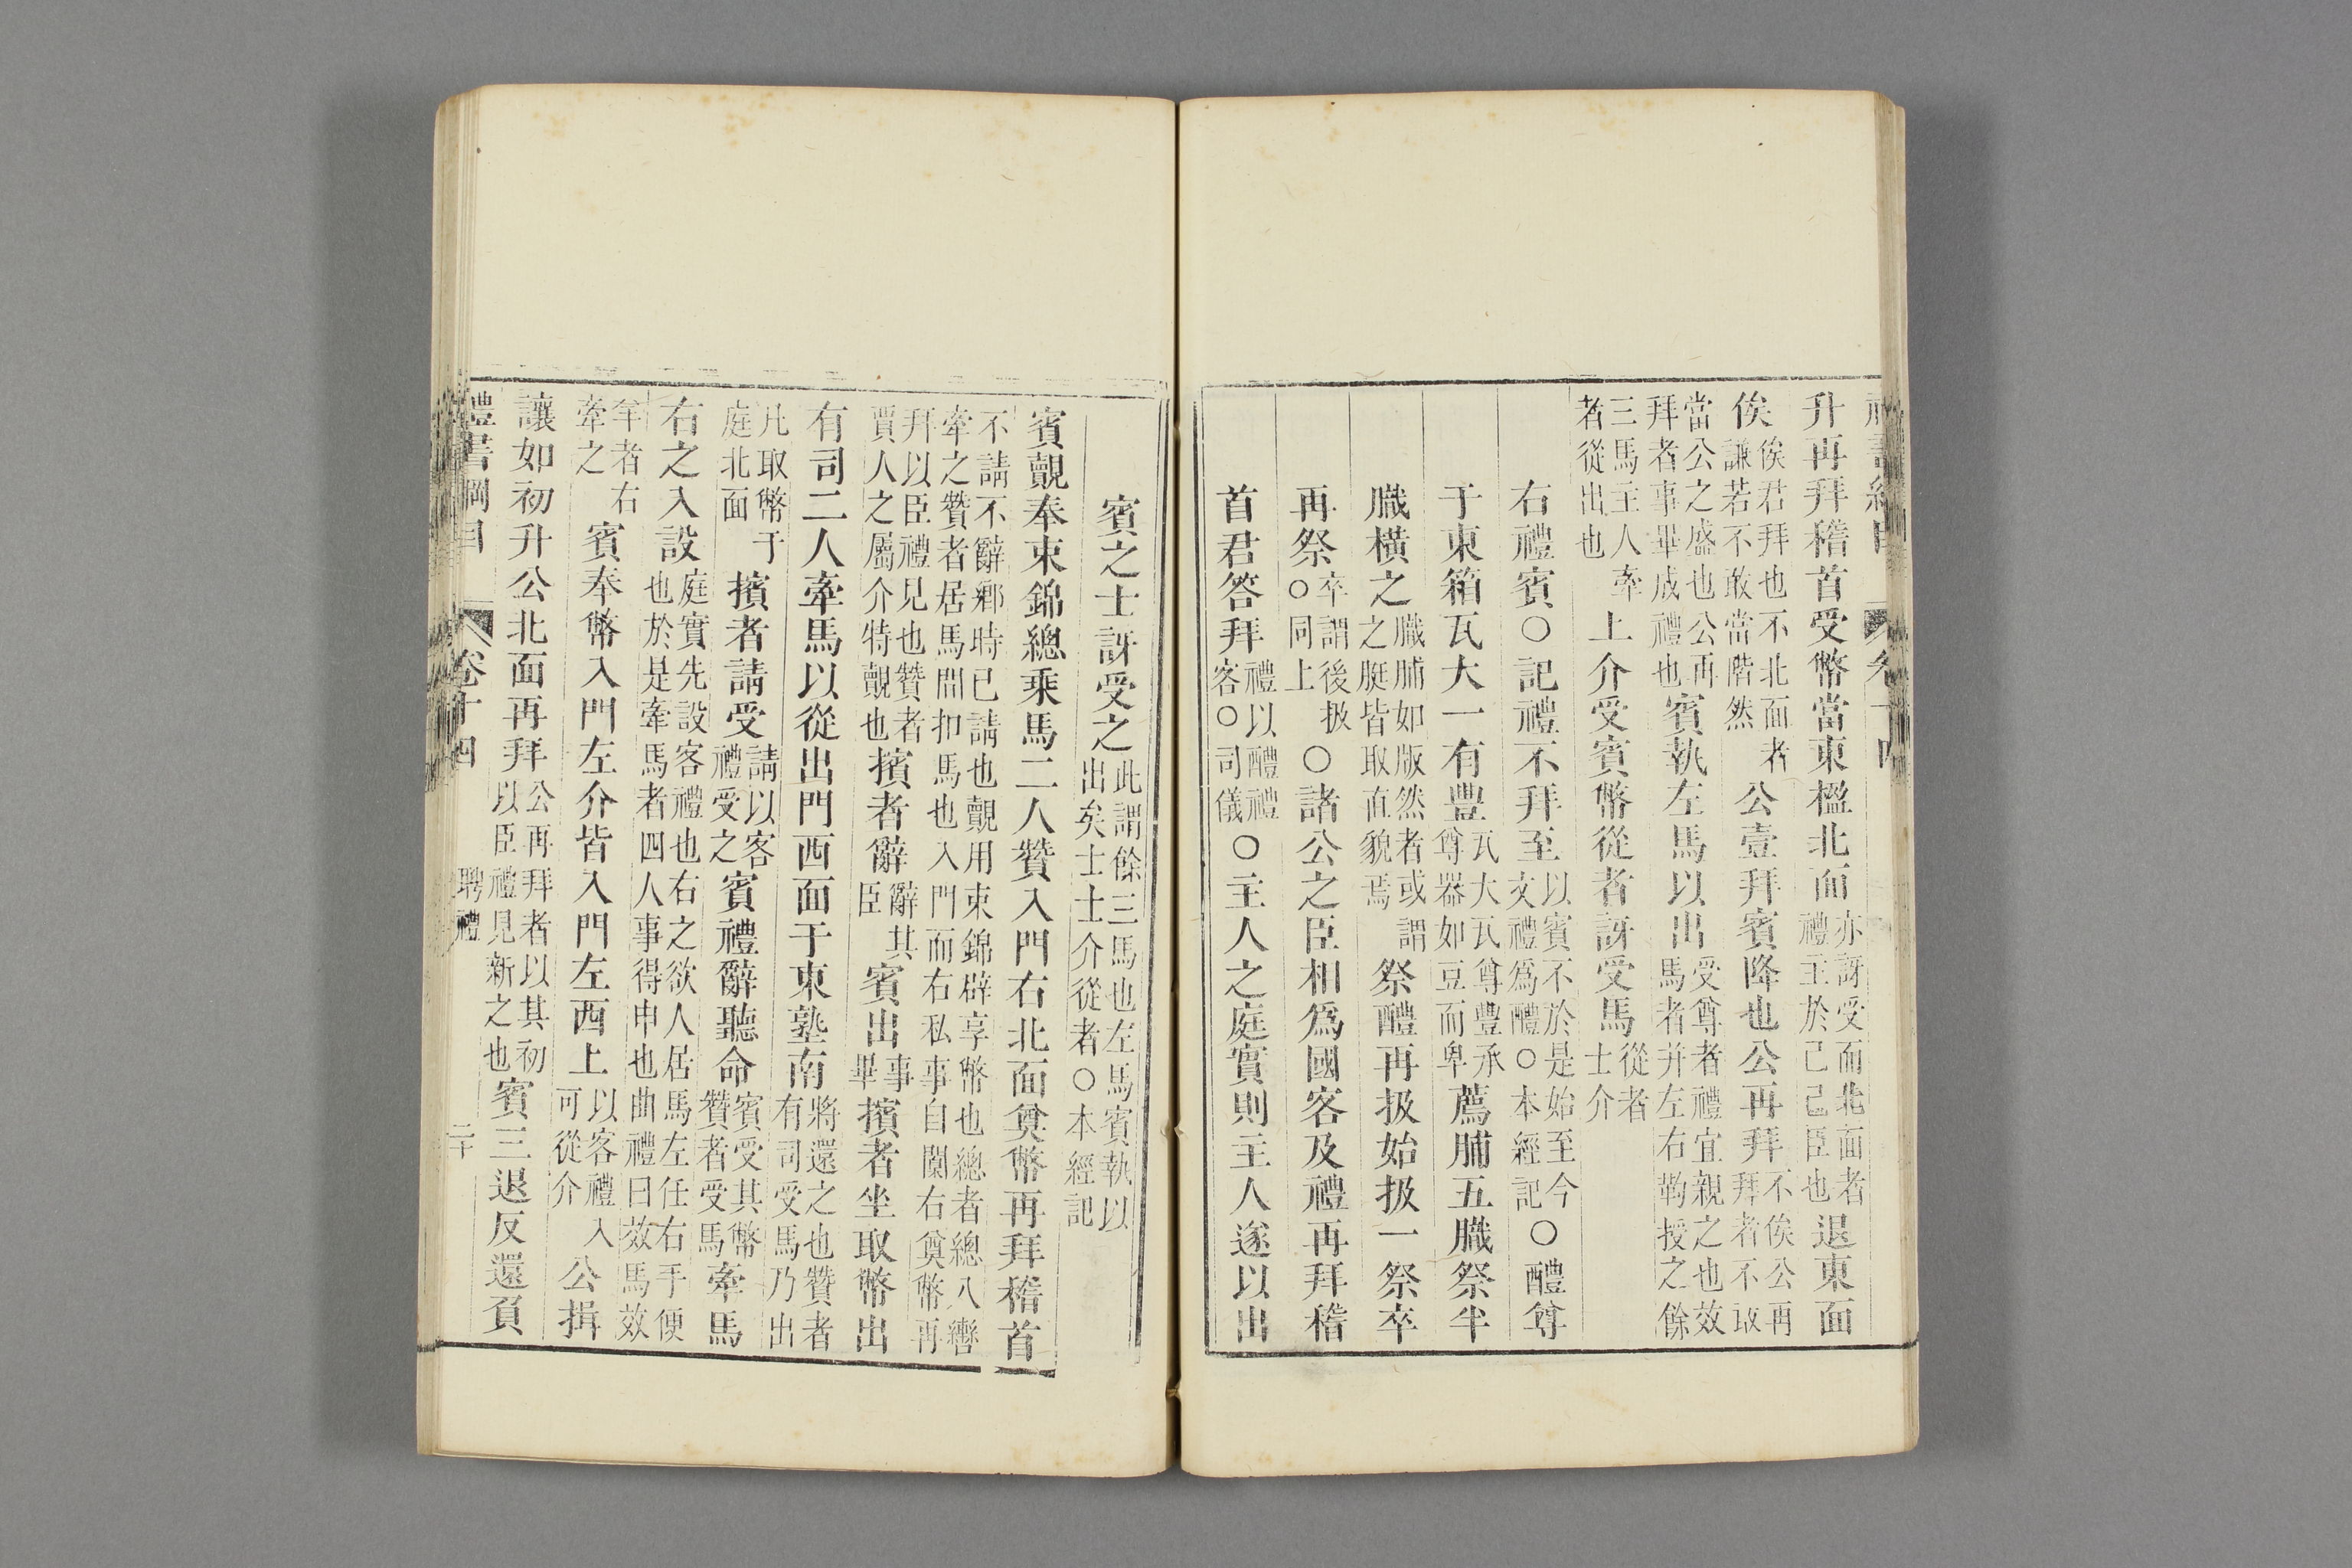 升再拜稽首受幣當東楹北面亦訝受而北面者禮主於己己臣也退東面
俟俟君拜也不北面者謙若不敢當階然公壹拜賓降也公再拜不俟公再拜者不敢
當公之盛也公再拜者事畢成禮也賓執左馬以出受尊者禮宜親之也效馬者并左右靮授之餘
三馬主人牽者從出也上介受賓幣從者訝受馬從者士介
右禮賓○記禮不拜至以賓不於是始至今文禮爲醴○本經記○醴尊
于東箱瓦大一有豐瓦大瓦尊豐承尊器如豆而卑薦脯五膱祭半
膱橫之膱脯如版然者或謂之脡皆取直貌焉祭醴再扱始扱一祭卒
再祭卒謂後扱○同上○諸公之臣相爲國客及禮再拜稽
首君答拜禮以醴禮客○司儀○主人之庭實則主人遂以出
賓之士訝受之此謂餘三馬也左馬賓執以出矣士士介從者○本經記
賓覿奉束錦總乘馬二人贊入門右北面奠幣再拜稽首
不請不辭鄉時已請也覿用束錦辟享幣也總者總八轡牽之贊者居馬間扣馬也入門而右私事自闑右奠幣再
拜以臣禮見也贊者賈人之屬介特覿也擯者辭辭其臣賓出事畢擯者坐取幣出
有司二人牽馬以從出門西面于東塾南將還之也贊者有司受馬乃出
凡取幣于庭北面擯者請受請以客禮受之賓禮辭聽命賓受其幣贊者受馬牽馬
右之入設庭實先設客禮也右之欲人居馬左任右手便也於是牽馬者四人事得申也曲禮曰效馬效
羊者右牽之賓奉幣入門左介皆入門左西上以客禮入可從介公揖
讓如初升公北面再拜公再拜者以其初以臣禮見新之也賓三退反還負
禮書綱目 卷十四 聘禮 二十